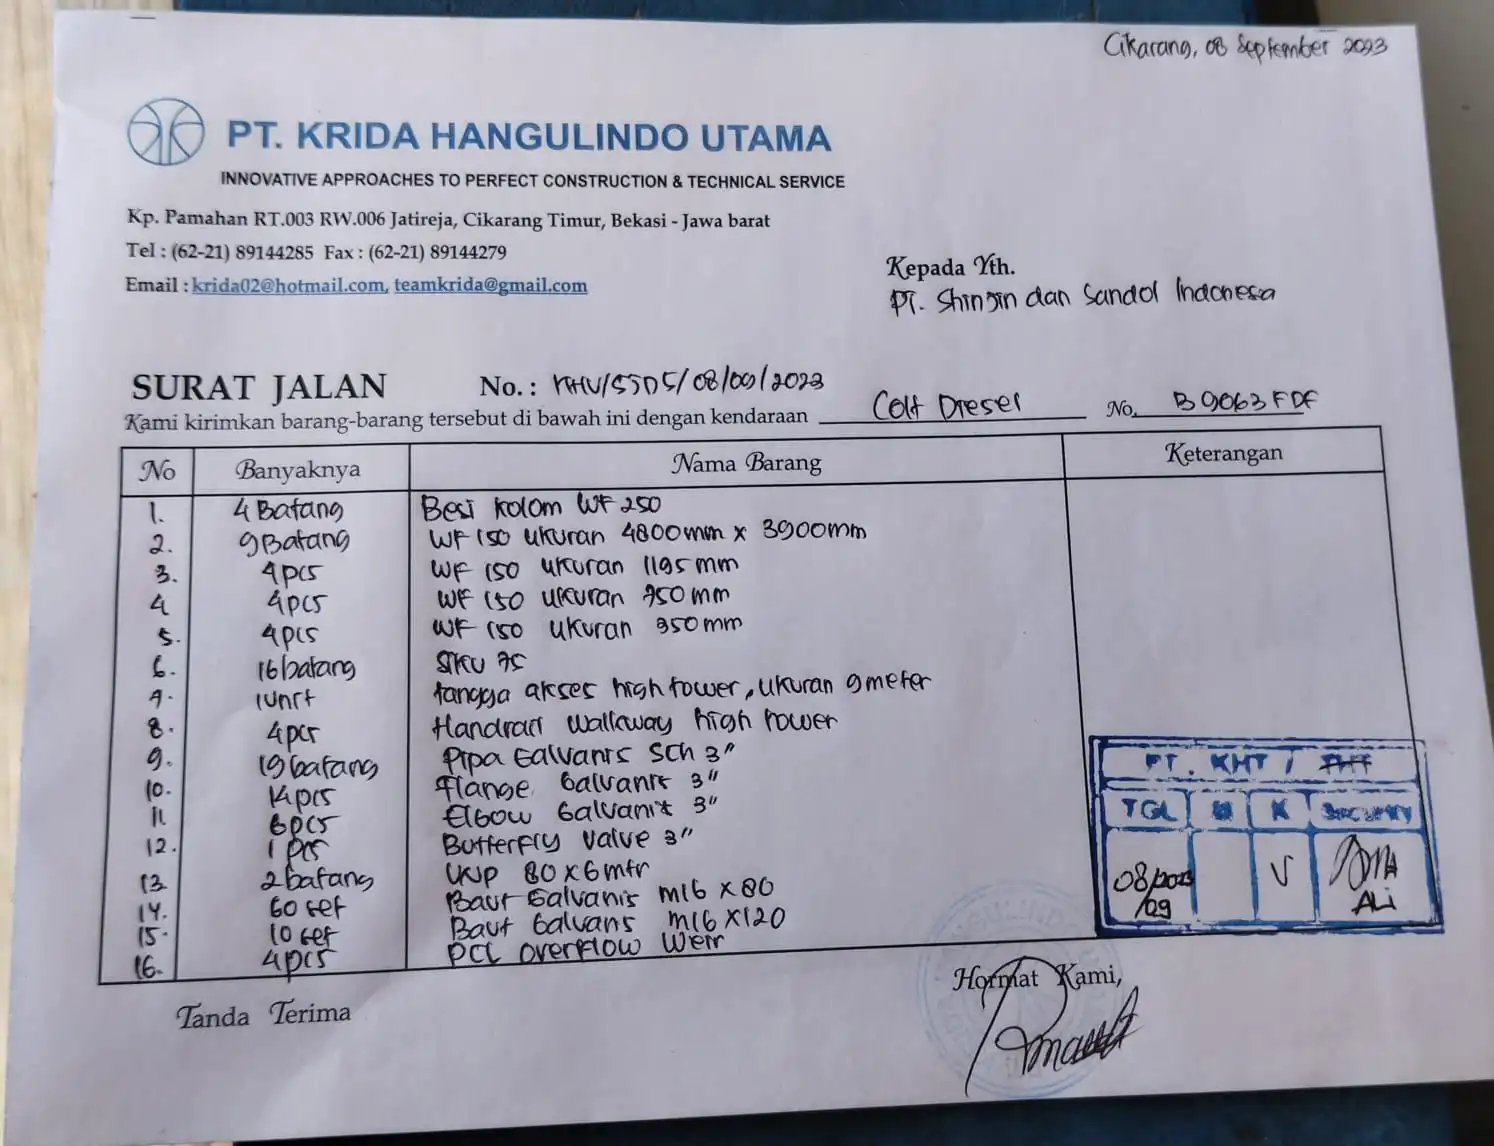 Cikarang, 08 September 2023
PT. KRIDA HANGULINDO UTAMA
INNOVATIVE APPROACHES TO PERFECT CONSTRUCTION & TECHNICAL SERVICE
Kp. Pamahan RT.003 RW.006 Jatireja, Cikarang Timur, Bekasi - Jawa barat
Tel : (62-21) 89144285 Fax : (62-21) 89144279
Email : krida02@hotmail.com, teamkrida@gmail.com
Kepada Yth.
PT. Shinjin dan Sandol Indonesa
SURAT JALAN No. : KHU/SJDS/08/09/2023
Kami kirimkan barang-barang tersebut di bawah ini dengan kendaraan Colt Diesel No. B 9063 FDF
No Banyaknya Nama Barang Keterangan
1. 4 Batang Besi kolom WF 250
2. 9 Batang WF 150 ukuran 4800mm x 3900mm
3. 4 pcs WF 150 ukuran 1195 mm
4 4 pcs WF 150 ukuran 750 mm
5. 4 pcs WF 150 ukuran 350 mm
6. 16 batang SIKU 75
7. 1 Unit tangga akses high tower, ukuran 9 meter
8. 4 pcs Handrail walkway high tower
9. 19 batang Pipa Galvanis Sch 3"
10. 14 pcs Flange Galvanis 3"
11. 6 pcs Elbow Galvanis 3"
12. 1 pcs Butterfly Valve 3"
13. 2 batang UNP 80 x 6 mtr
14. 60 set Baut Galvanis M16 x 80
15. 10 set Baut Galvans M16 x 120
16. 4 pcs overflow Weir
PT. KHT /
TGL K SECURITY
08/2023 V
/09 ALI
Tanda Terima
Hormat Kami,